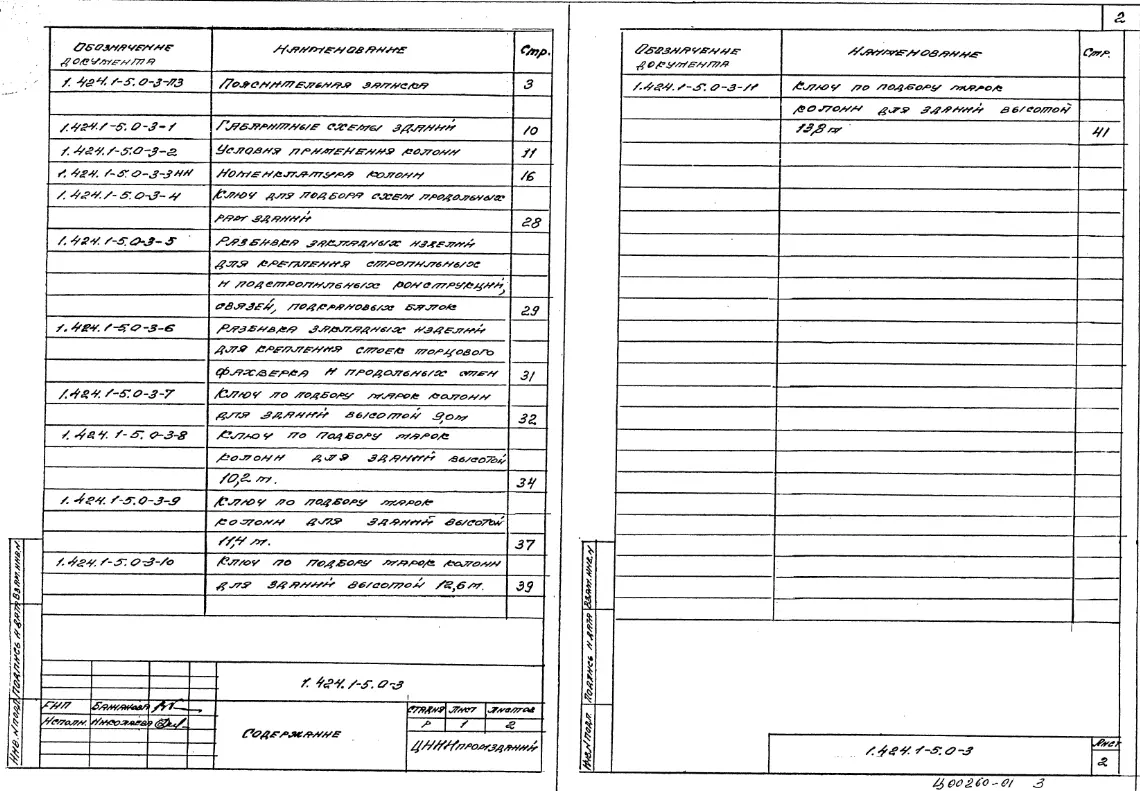 2
Обозначение документа Наименование Стр.
1.424.1-5.0-3-ПЗ Пояснительная записка 3
1.424.1-5.0-3-1 Габаритные схемы зданий 10
1.424.1-5.0-3-2 Условия применения колонн 11
1.424.1-5.0-3-3НН Номенклатура колонн 16
1.424.1-5.0-3-4 Ключ для подбора схем продольных
рам зданий 28
1.424.1-5.0-3-5 Разбивка закладных изделий
для крепления стропильных
и подстропильных конструкций,
связей, подкрановых балок 29
1.424.1-5.0-3-6 Разбивка закладных изделий
для крепления стоек торцового
фахверка и продольных стен 31
1.424.1-5.0-3-7 Ключ по подбору марок колонн
для зданий высотой 9,0м 32
1.424.1-5.0-3-8 Ключ по подбору марок
колонн для зданий высотой
10,2 м. 34
1.424.1-5.0-3-9 Ключ по подбору марок
колонн для зданий высотой
11,4 м. 37
1.424.1-5.0-3-10 Ключ по подбору марок колонн
для зданий высотой 12,6 м. 39
Инв.№подл. Подпись и дата Взам.инв.№
1.424.1-5.0-3
ГИП
Исполн.
Содержание
Стадия Лист Листов
Р 1 2
ЦНИИпромзданий
Обозначение документа Наименование Стр.
1.424.1-5.0-3-11 Ключ по подбору марок
колонн для зданий высотой
13,8 м 41
Инв.№подл. Подпись и дата Взам.инв.№
1.424.1-5.0-3
Лист
2
Ц00260-01 3